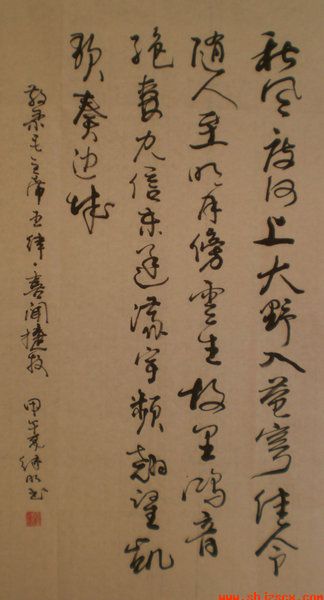 秋风度河上大野入苍穹佳令
随人至明月傍云生故里鸿音
绝妻儿信未通满宇频翘望凯
歌奏边城
敬录毛主席五律·喜闻捷报 甲午 书